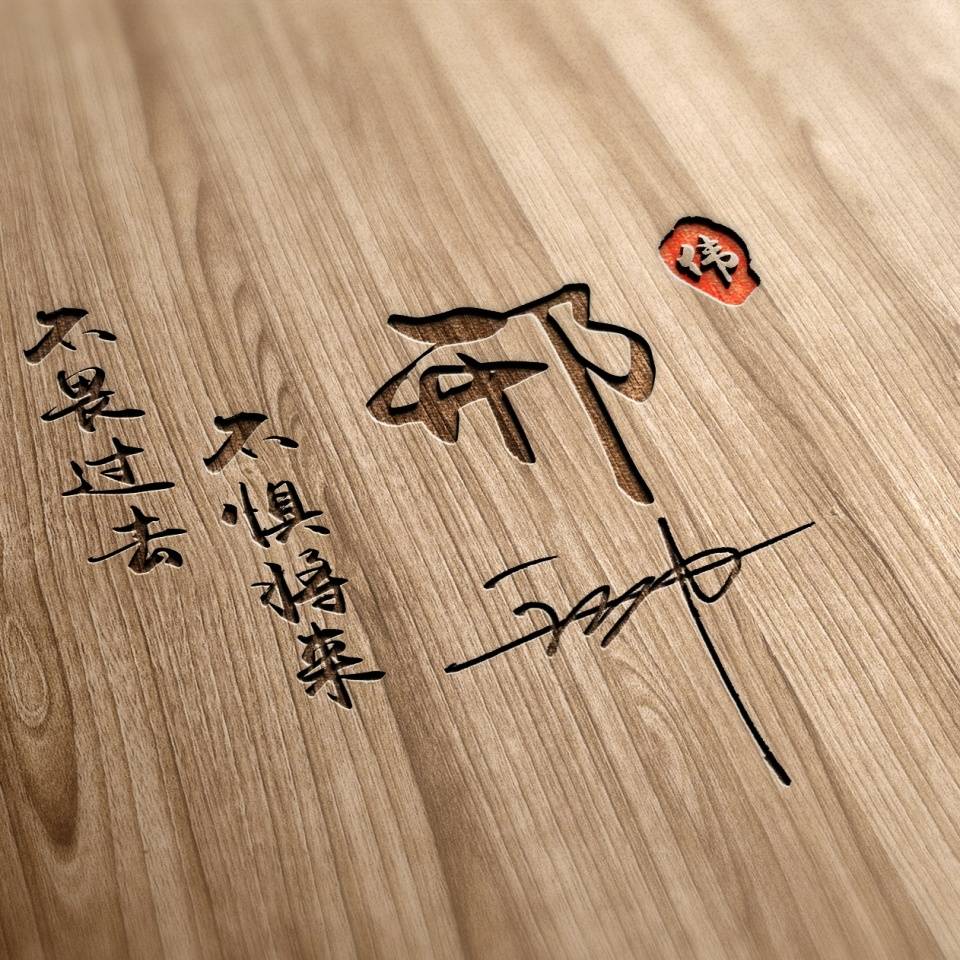 不畏过去
不惧将来
邢
伟